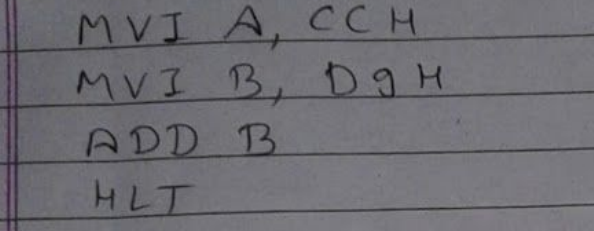 MVI A, CCH
MVI B, D9H
ADD B
HLT